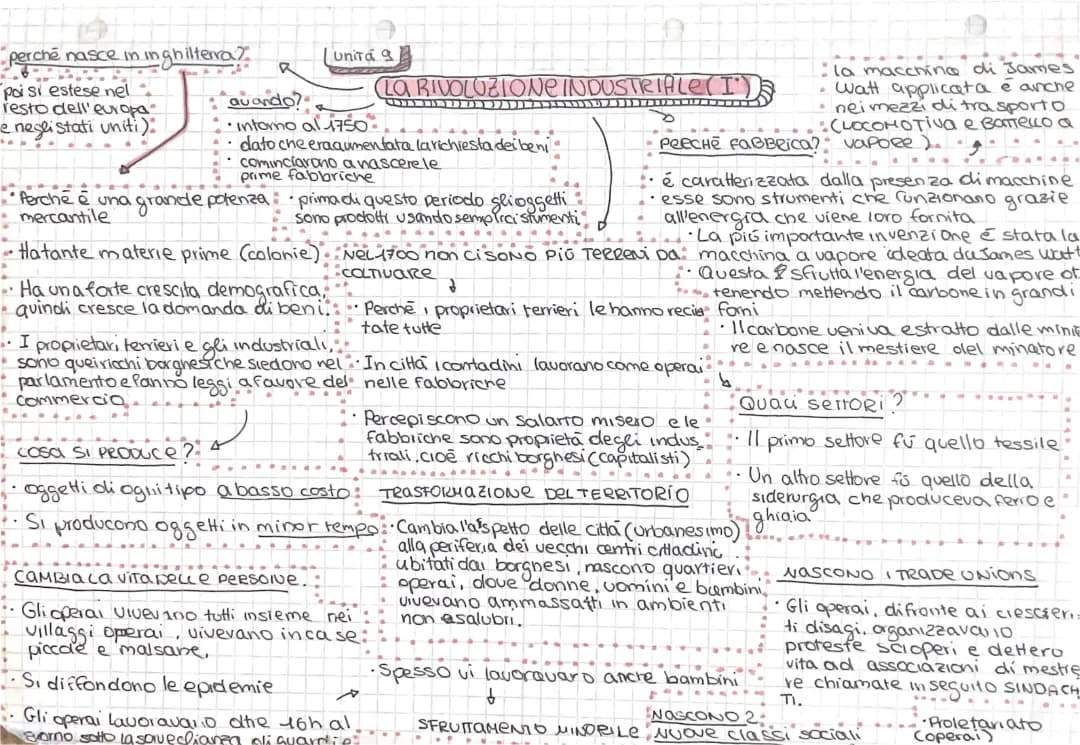 Unità 9
LA RIVOLUZIONE INDUSTRIALE (I°)
perchè nasce in inghilterra?
poi si estese nel
resto dell'europa
e negli stati uniti)
• Perchè è una grande potenza
mercantile
• Ha tante materie prime (colonie)
• Ha una forte crescita demografica,
quindi cresce la domanda di beni.
• I proprietari terrieri e gli industriali,
sono quei ricchi borghesi che siedono nel
parlamento e fanno leggi a favore del
commercio
quando?
• intorno al 1750
• dato che era aumentata la richiesta dei beni
• cominciarono a nascere le
prime fabbriche
• prima di questo periodo gli oggetti
sono prodotti usando semplici strumenti
NEL 1700 NON CI SONO PIÚ TERRENI DA
COLTIVARE
• Perchè i proprietari terrieri le hanno recin
tate tutte
• In città i contadini lavorano come operai
nelle fabbriche
• Percepiscono un salario misero e le
fabbriche sono proprietà degli indus_
triali, cioè ricchi borghesi (capitalisti)
la macchina di James
Watt applicata è anche
nei mezzi di trasporto
(LOCOMOTIVA e BATTELLO a
VAPORE).
PERCHÈ FABBRICA?
• è caratterizzata dalla presenza di macchine
• esse sono strumenti che funzionano grazie
all'energia che viene loro fornita
• La più importante invenzione è stata la
macchina a vapore ideata da James Watt
• Questa sfrutta l'energia del vapore ot
tenendo mettendo il carbone in grandi
forni
• Il carbone veniva estratto dalle minie
re e nasce il mestiere del minatore
QUALI SETTORI?
• Il primo settore fú quello tessile
• Un altro settore fú quello della
siderurgia che produceva ferro e
ghiaia
COSA SI PRODUCE?
• oggetti di ogni tipo a basso costo
• Si producono oggetti in minor tempo
TRASFORMAZIONE DEL TERRITORIO
• Cambia l'aspetto delle città (urbanesimo)
alla periferia dei vecchi centri cittadini
abitati dai borghesi, nascono quartieri
operai, dove donne, uomini e bambini
vivevano ammassatti in ambienti
non salubri.
• Spesso vi lavoravaro anche bambini
SFRUTTAMENTO MINORILE
CAMBIA LA VITA DELLE PERSONE.
• Gli operai vivevano tutti insieme nei
villaggi operai, vivevano in case
piccole e malsane,
• Si diffondono le epidemie
• Gli operai lavoravano oltre 16h al
giorno sotto la sorveglianza di guardie
NASCONO I TRADE UNIONS
• Gli operai, difronte ai crescien
ti disagi, organizzavano
proteste scioperi e dettero
vita ad associazioni di mestie
re chiamate in seguito SINDACA
TI.
NASCONO 2
NUOVE CLASSI SOCIALI
• Proletariato
(operai)